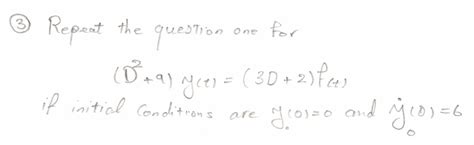 ③ Repeat the question one for
(D²+9) y(t) = (3D+2) f(t)
if initial conditions are y₀(0)=0 and ẏ₀(0)=6